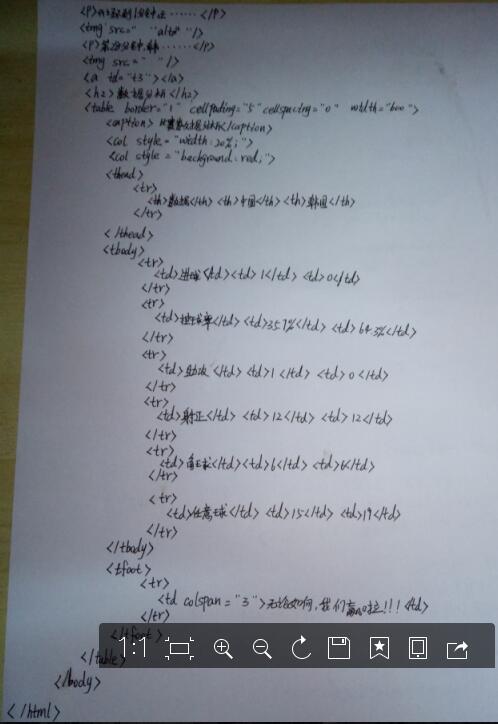 <P> ⋯⋯ </P>
<img src=" "alt=" "/>
<P> ⋯⋯</P>
<img src=" "/>
<a id="t3"></a>
<h2>数据分析</h2>
<table border="1" cellpading="5" cellspacing="0" width="600">
<caption>比赛数据分析</caption>
<col style="width:20%;">
<col style="background:red;">
<thead>
<tr>
<th>数据</th> <th>中国</th> <th>韩国</th>
</tr>
</thead>
<tbody>
<tr>
<td>进球<td><td>1</td> <td>0</td>
</tr>
<tr>
<td>控球率</td> <td>35.7%</td> <td>64.3%</td>
</tr>
<tr>
<td>助攻</td> <td>1</td> <td>0</td>
</tr>
<tr>
<td>射正</td> <td>12</td> <td>12</td>
</tr>
<tr>
<td>角球</td><td>6</td> <td>6</td>
</tr>
<tr>
<td>任意球</td> <td>15</td> <td>19</td>
</tr>
</tbody>
<tfoot>
<tr>
<td colspan="3">无论如何,我们赢啦!!!<td>
</tr>
</tfoot>
</table>
</body>
</html>
1:1